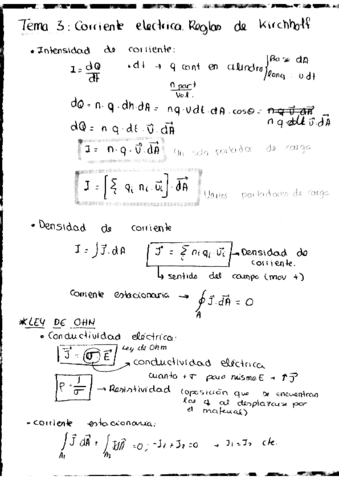 Tema 3: Corriente electrica. Reglas de Kirchhoff
• Intensidad de corriente:
I = dQ/dt • dt → q cont en cilindro base dA long v dt
n part/vol.
dQ = n · q · dh dA = n q v dt · dA · cosθ = n q v⃗ dA
n q dt v⃗ dA
dQ = n q · dt · v⃗ · dA⃗
I = n · q · v⃗ · dA⃗ Un solo portador de carga
I = [Σi qi ni v⃗i] · dA⃗ Varios portadores de carga
• Densidad de corriente
I = ∫ J⃗ · dA J⃗ = Σi ni qi v⃗i → Densidad de corriente.
↳ sentido del campo (mov +)
Corriente estacionaria → ∮A J⃗ · dA⃗ = 0
* LEY DE OHN
• Conductividad eléctrica:
Ley de Ohm
J⃗ = σ E⃗
conductividad eléctrica
cuanto + σ para mismo E → ↑ J⃗
ρ = 1/σ → Resistividad (oposición que se encuentran
las q al desplazarse por
el material)
• corriente estacionaria:
∫A1 J⃗ dA⃗ + ∫A2 J⃗ dA⃗ = 0 ; -J1 + J2 = 0 → J1 = J2 cte.